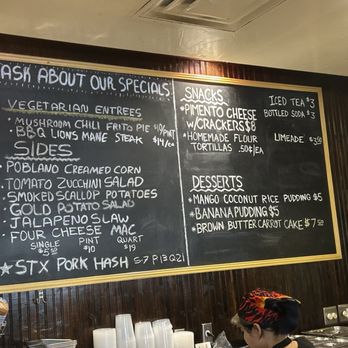 ASK ABOUT OUR SPECIALS
VEGETARIAN ENTREES
• MUSHROOM CHILI FRITO PIE
• BBQ LIONS MANE STEAK $14/ea
SIDES
POBLANO CREAMED CORN
TOMATO ZUCCHINI SALAD
SMOKED SCALLOP POTATOES
GOLD POTATO SALAD
JALAPENO SLAW
FOUR CHEESE MAC
SINGLE PINT QUART
$5.50 $10 $19
★ STX PORK HASH
SNACKS
• PIMENTO CHEESE
W/CRACKERS $8
• HOMEMADE FLOUR
TORTILLAS .50¢/EA
ICED TEA $3
BOTTLED SODA $3
LIMEADE
DESSERTS
• MANGO COCONUT RICE PUDDING $5
• BANANA PUDDING $5
• BROWN BUTTER CARROT CAKE $7.50